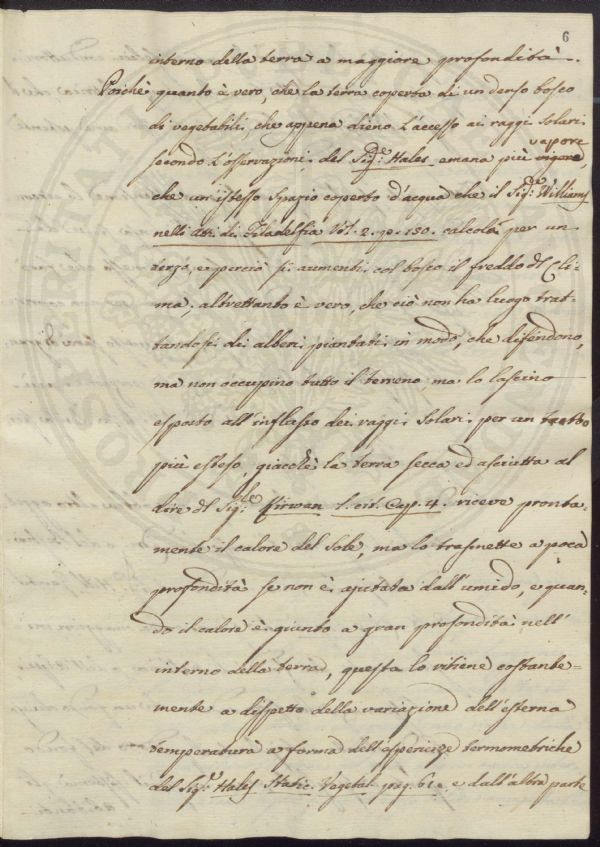 6
interno della terra a maggiore profondità.
Poichè quanto è vero, che la terra coperta di un denso bosco
di vegetabili, che appena dieno l'accesso ai raggi solari
secondo l'osservazioni del Sig.e Hales emana più vapore
che un istesso spazio coperto d'acqua che il Sig.e Williams
nelli Atti di Filadelfia Vol. 2. p. 150. calcola per un
terzo, e perciò si aumenti col bosco il freddo del Cli-
ma, altrettanto è vero, che ciò non ha luogo trat-
tandosi di alberi piantati in modo, che difendono,
ma non occupino tutto il terreno ma lo lascino
esposto all'influsso dei raggi solari per un tratto
più esteso, giacchè la terra secca ed asciutta al
dire del Sig.le Kirwan l. cit. Cap. 4. riceve pronta-
mente il calore del Sole, ma lo trasmette a poca
profondità se non è ajutata dall'umido, e quan-
do il calore è giunto a gran profondità nell'
interno della terra, questa lo ritiene costante-
mente a dispetto della variazione dell'esterna
temperatura a forma dell'esperienze termometriche
del Sig.e Hales Static. Vegetal. pag. 61. e dall'altra parte